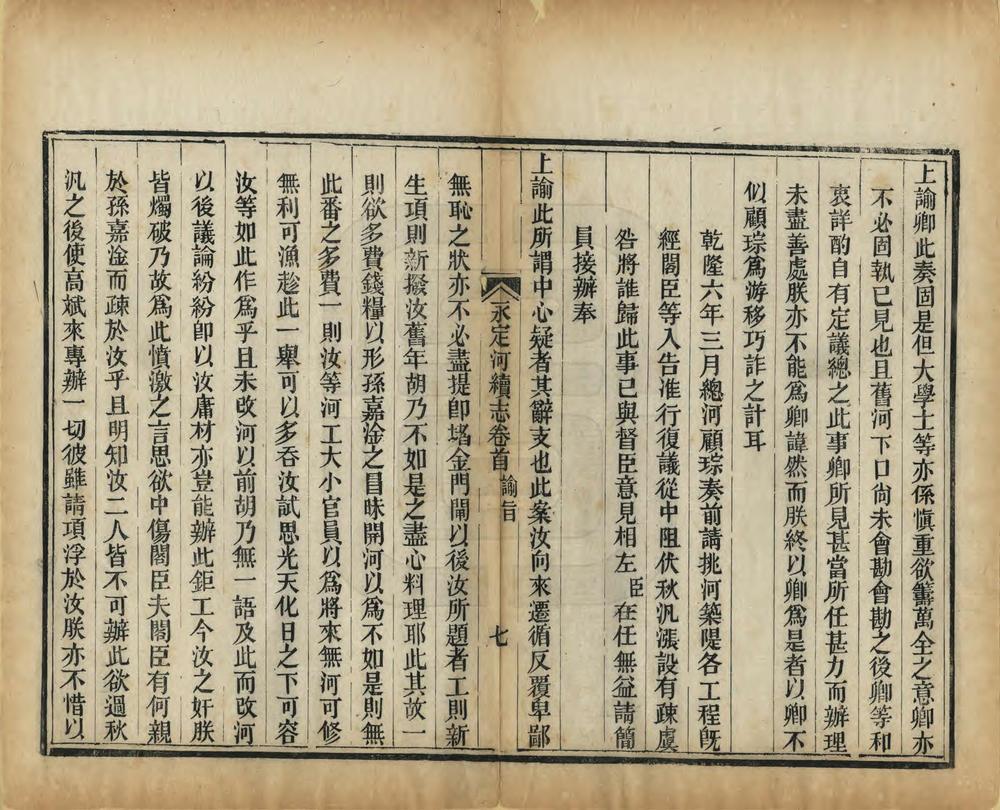 上諭卿此奏固是但大學士等亦係慎重欲籌萬全之意卿亦
不必固執已見也且舊河下口尚未會勘會勘之後卿等和
衷詳酌自有定議總之此事卿所見甚當所任甚力而辦理
未盡善處朕亦不能爲卿諱然而朕終以卿爲是者以卿不
似顧琮爲游移巧詐之計耳
乾隆六年三月總河顧琮奏前請挑河築隄各工程旣
經閣臣等入告准行復議從中阻伏秋汛漲設有疎虞
咎將誰歸此事已與督臣意見相左臣在任無益請簡
員接辦奉
上諭此所謂中心疑者其辭支也此案汝向來遷循反覆卑鄙
永定河續志卷首 諭旨 七
無恥之狀亦不必盡提卽堵金門閘以後汝所題者工則新
生項則新撥汝舊年胡乃不如是之盡心料理耶此其故一
則欲多費錢糧以形孫嘉淦之冒昧開河以爲不如是則無
此番之多費一則汝等河工大小官員以爲將來無河可修
無利可漁趁此一舉可以多吞汝試思光天化日之下可容
汝等如此作爲乎且未改河以前胡乃無一語及此而改河
以後議論紛紛卽以汝庸材亦豈能辦此鉅工今汝之奸朕
皆燭破乃故爲此憤激之言思欲中傷閣臣夫閣臣有何親
於孫嘉淦而疎於汝乎且明知汝二人皆不可辦此欲過秋
汛之後使高斌來專辦一切彼雖請項浮於汝朕亦不惜以